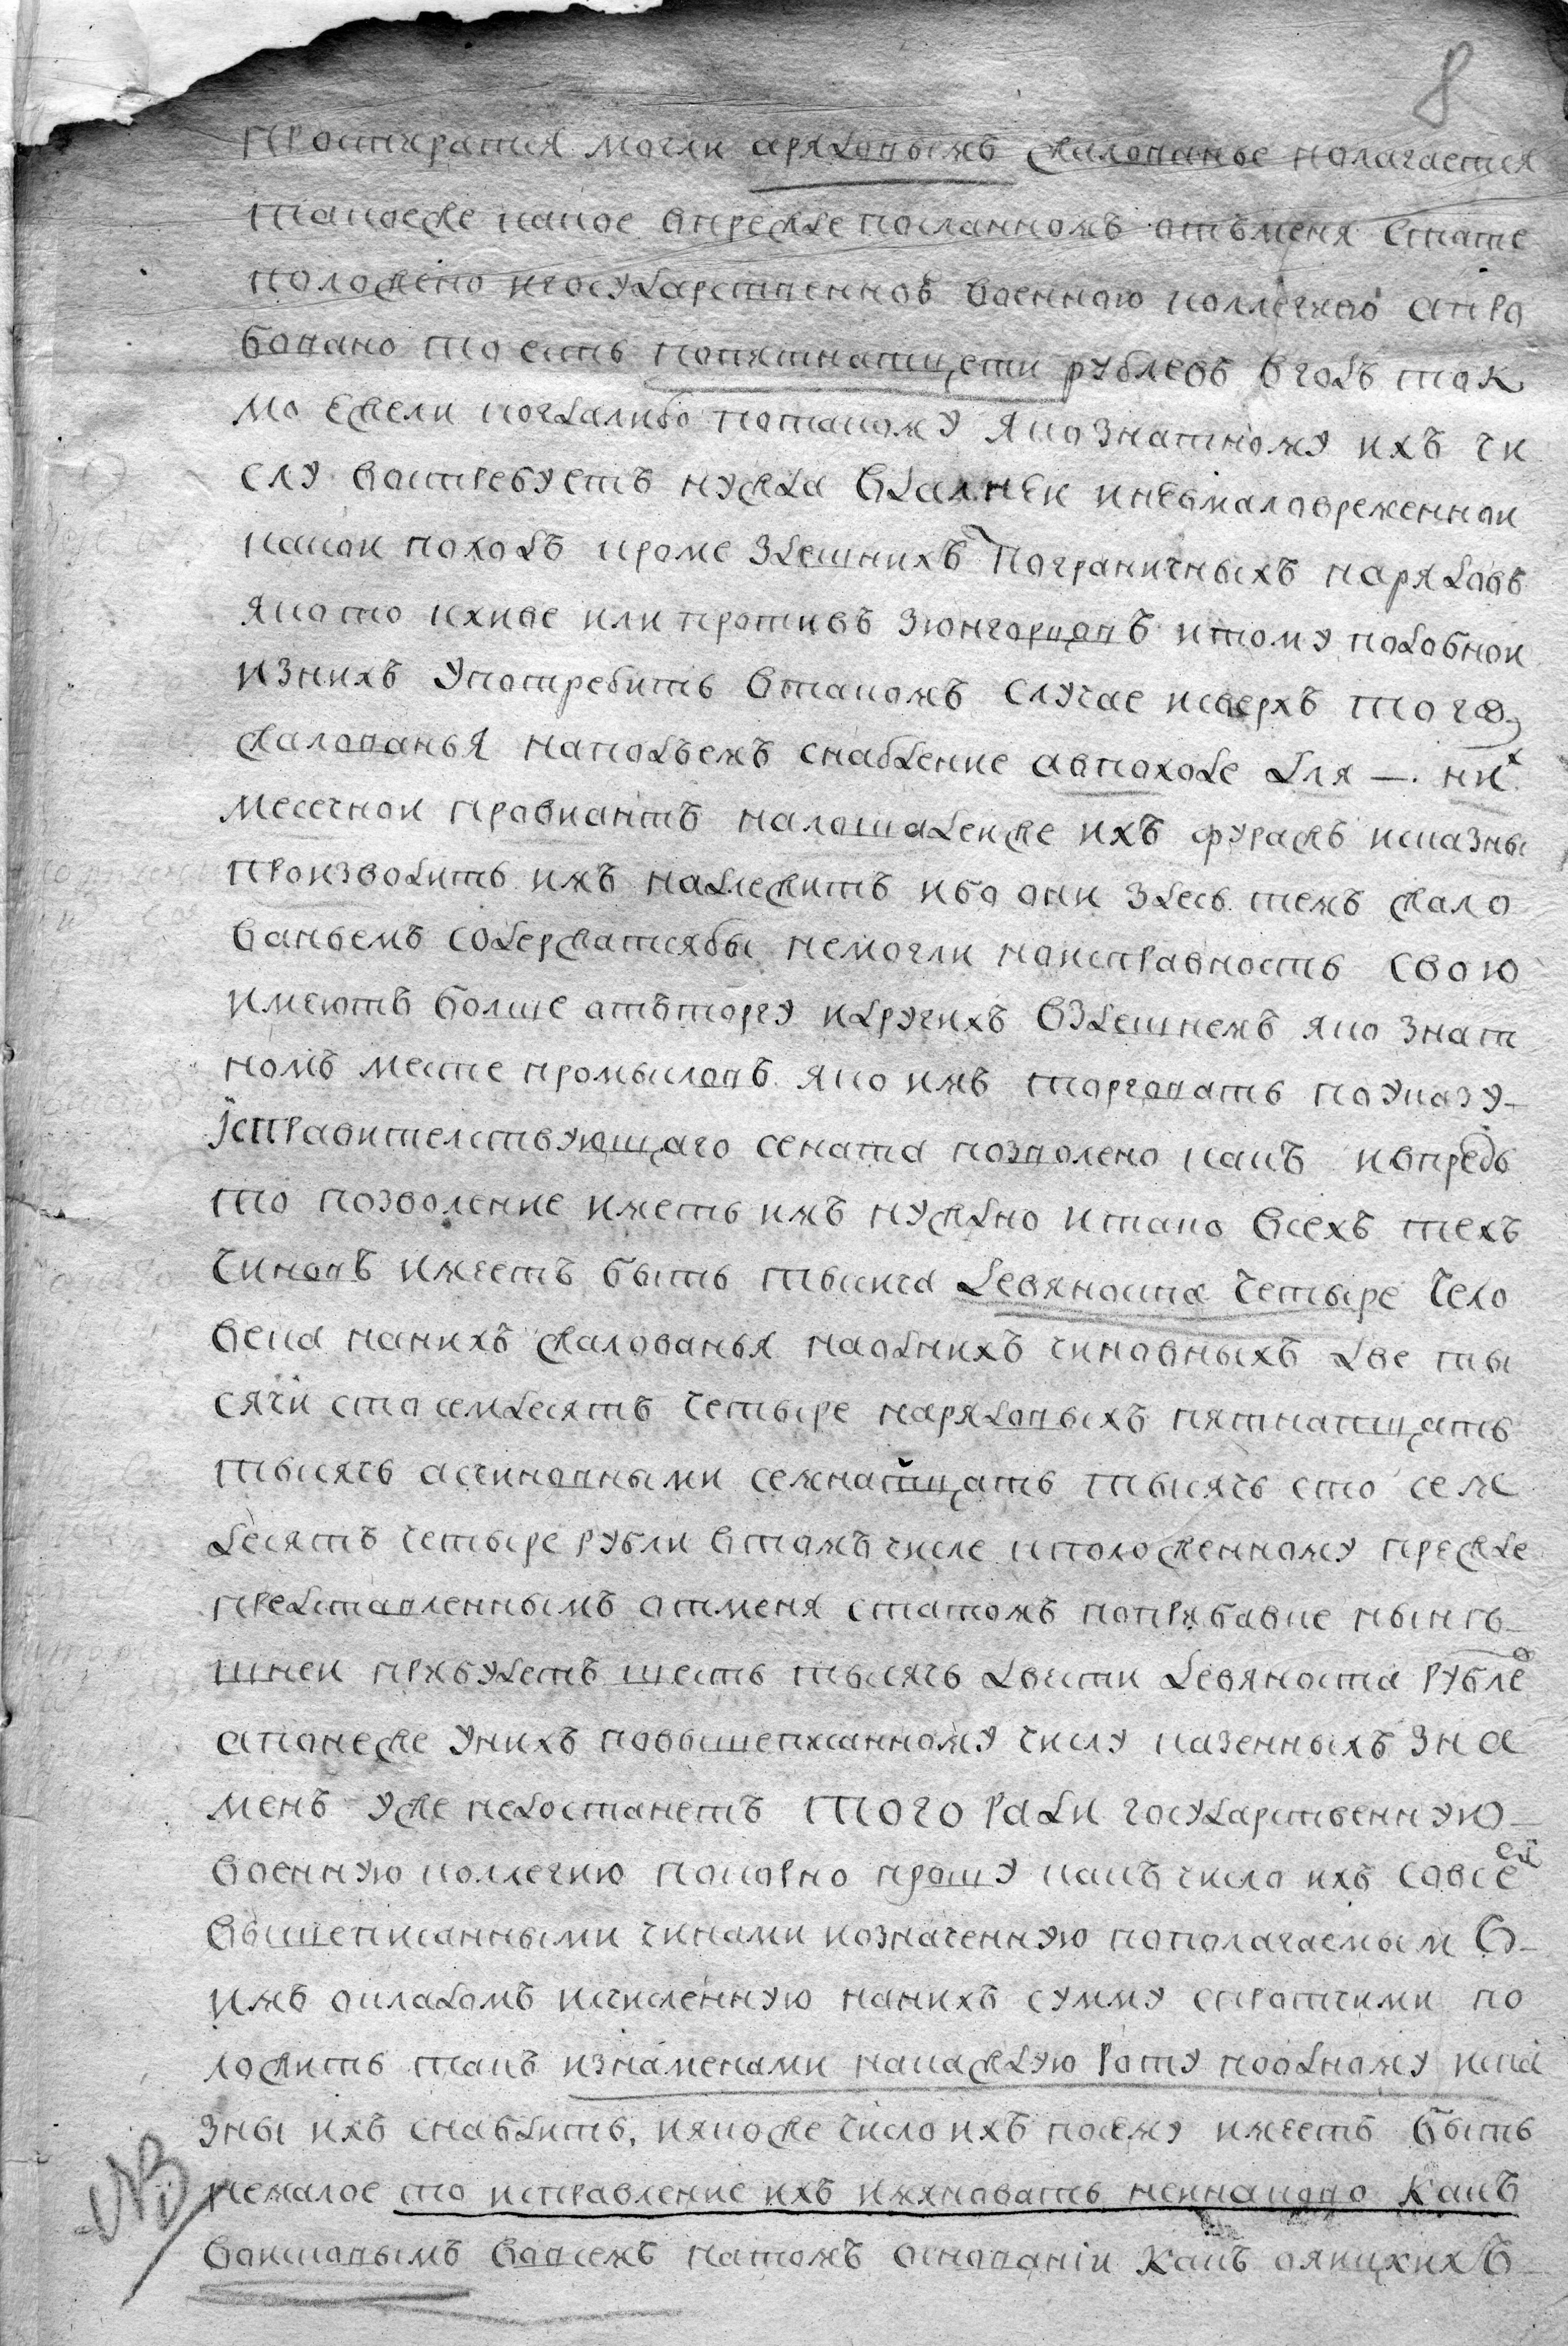 8
простиратся могли арядовымъ жалованье полагается
такоеже какое впрежде посланномъ отъменя стате
положено игосударственной военною коллегиею апро
бовано то есть попятнатцети рублевъ вгодъ ток
мо ежели когдалибо потакому яко знатному ихъ чи
слу востребуетъ нужда вдалней иневмаловременной
какой походъ кроме здешнихъ пограничныхъ нарядовъ
якото кхиве или противъ зюнгорцовъ итому подобной
изнихъ употребить втакомъ случае исверхъ того
жалованья наподъемъ снабдение авпоходе для — них
месечной провиантъ налошадейже ихъ фуражъ исказны
производить имъ надлежитъ ибо они здесь темъ жало
ваньемъ содержатсябы немогли ноисправность свою
имеютъ болше отъторгу идругихъ вздешнемъ яко знат
номъ месте промысловъ яко имъ торговать поуказу
їсправителствующаго сената позволено какъ ивпредь
то позволение иметь имъ нуждно итако всехъ техъ
чиновъ имеетъ быть тысяча девяноста четыре чело
века нанихъ жалованья наоднихъ чиновныхъ две ты
сячи сто семдесятъ четыре нарядовыхъ пятнатцать
тысячь асчиновными семнатцать тысячь сто семъ
десятъ четыре рубли втомъ числе кположенному прежде
представленнымъ отменя статомъ поприбавке нынѣ
шней прибудетъ шесть тысячь двести девяноста рубле
апонеже унихъ повышеписанному числу казенныхъ зна
менъ уже недостанетъ того ради государственную
военную коллегию покорно прошу какъ число ихъ совсе
вышеписанными чинами иозначенную пополагаемым
имъ окладомъ исчисленную нанихъ сумму спротчими по
ложить такъ изнаменами накаждую роту поодному иска
зны ихъ снабдить, иякоже число ихъ посему имеетъ быть
немалое то исправление ихъ именовать неинаково какъ
воисковымъ вовсемъ натомъ основаніи какъ ояицкихъ
NB